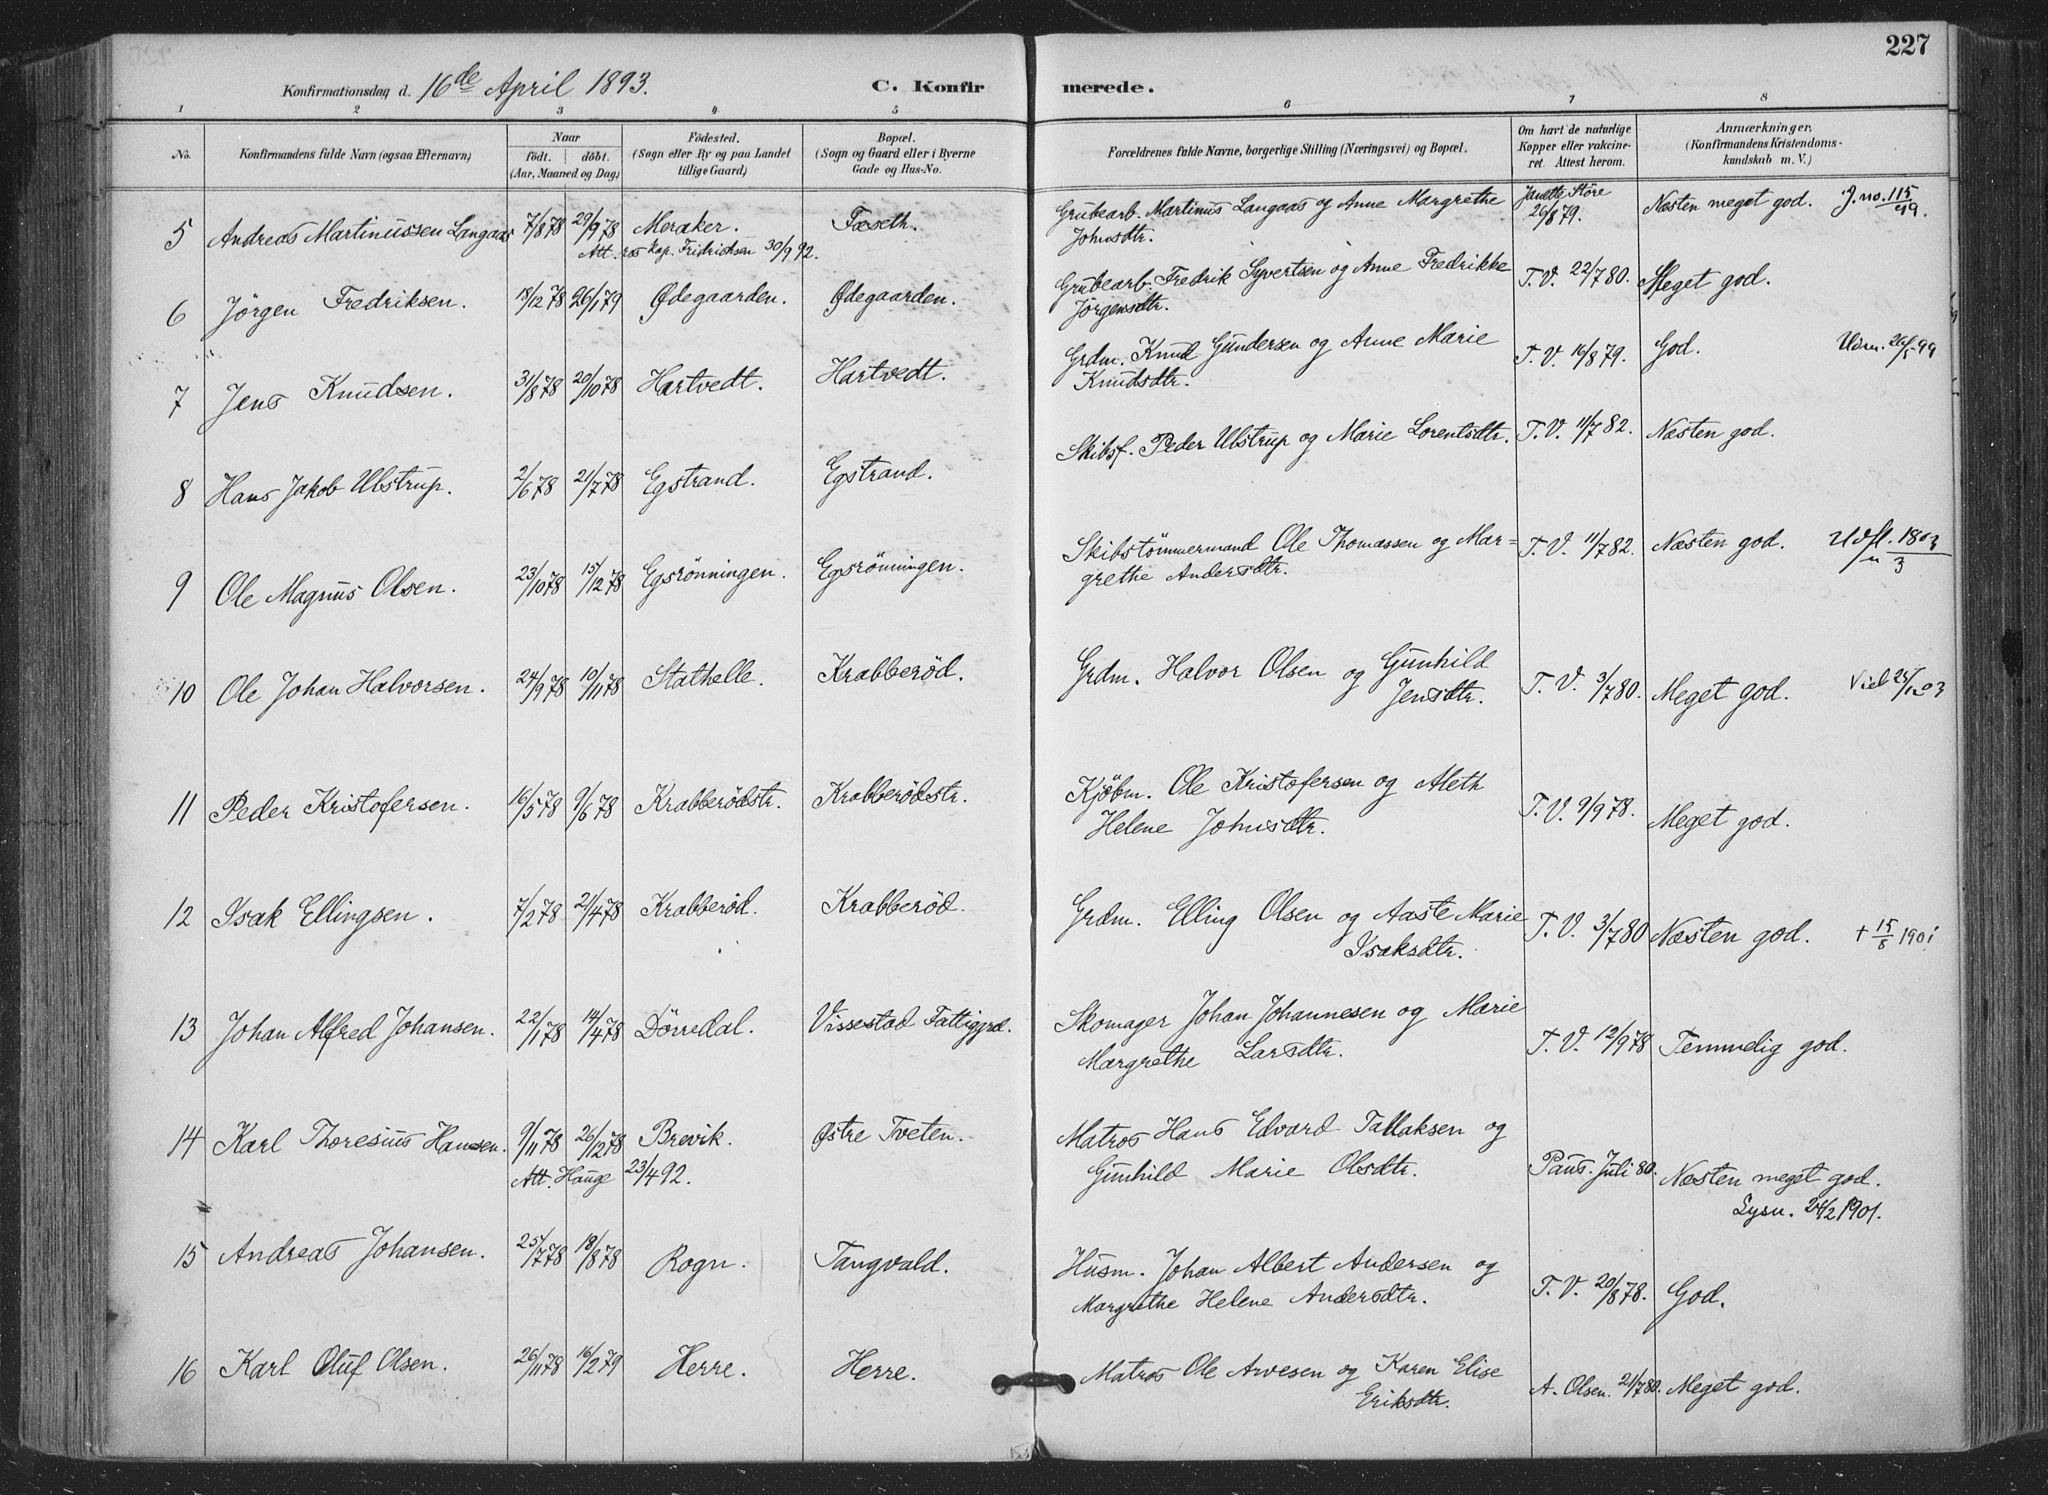 227
Konfirmationsdag d. 16de April 1893. C. Konfirmerede.
1 2 3 4 5 6 7 8
No. Konfirmandens fulde Navn (ogsaa Efternavn) Naar födt. döbt. (Aar, Maaned og Dag) Födested. (Sogn eller By og paa Landet tillige Gaard) Bopæl. (Sogn og Gaard eller i Byerne Gade og Hus-No. Forældrenes fulde Navne, borgerlige Stilling (Næringsvei) og Bopæl. Om havt de naturlige Kopper eller vakcineret. Attest herom. Anmærkninger. (Konfirmandens Kristendomskundskab m. V.)
5 Andreas Martinussen Langaas 7/8 78 29/9 78 Meraker. Fæseth. Grubearb. Martinus Langaas og Anne Margrethe Johnsdtr. Janette Störe 26/8 79. Næsten meget god. J.no. 115/99.
Att. res. kap. Fridrichsen 30/9 92.
6 Jörgen Fredriksen. 18/12 78 26/1 79 Ødegaarden. Ødegaarden. Grubearb. Fredrik Syvertsen og Anne Fredrikke Jörgensdtr. T. V. 22/7 80. Meget god.
7 Jens Knudsen. 31/8 78 20/10 78 Hartvedt. Hartvedt. Grdm. Knud Gundersen og Anne Marie Knudsdtr. T. V. 16/8 79. God.
8 Hans Jakob Ulstrup. 2/6 78 21/7 78 Egstrand. Egstrand. Skibsf. Peder Ulstrup og Marie Lorentsdtr. T. V. 11/7 82. Næsten god.
9 Ole Magnus Olsen. 23/10 78 15/12 78 Egsrönningen. Egsrönningen. Skibstömmermand Ole Thomassen og Margrethe Andersdtr. T. V. 11/7 82. Næsten god.
10 Ole Johan Halvorsen. 24/9 78 10/11 78 Stathelle. Krabberöd. Grdm. Halvor Olsen og Gunhild Jensdtr. T. V. 3/7 80. Meget god.
11 Peder Kristofersen. 16/5 78 9/6 78 Krabberödstr. Krabberödstr. Kjöbm. Ole Kristofersen og Aleth Helene Johnsdtr. T. V. 9/9 78. Meget god.
12 Isak Ellingsen. 7/2 78 21/4 78 Krabberöd. Krabberöd. Grdm. Elling Olsen og Aaste Marie Isaksdtr. T. V. 3/7 80 Næsten god. + 15/8 1901
13 Johan Alfred Johansen. 22/1 78 14/4 78 Dörredal. Vissestad Fattiggrd. Skomager Johan Johannesen og Marie Margrethe Larsdtr. T. V. 12/9 78 Temmelig god.
14 Karl Thoresius Hansen. 9/11 78 26/12 78 Brevik. Østre Tveten. Matros Hans Edvard Tallaksen og Gunhild Marie Olsdtr. Paus. Juli 80. Næsten meget god.
Att. Hauge 23/4 92. Lysn. 24/2 1901.
15 Andreas Johansen. 25/7 78 18/8 78 Rogn. Tangvald. Husm. Johan Albert Andersen og Margrethe Helene Andersdtr. T. V. 20/8 78. God.
16 Karl Oluf Olsen. 26/11 78 16/2 79 Herre. Herre. Matros Ole Arvesen og Karen Elise Eriksdtr. A. Olsen. 21/7 80. Meget god.